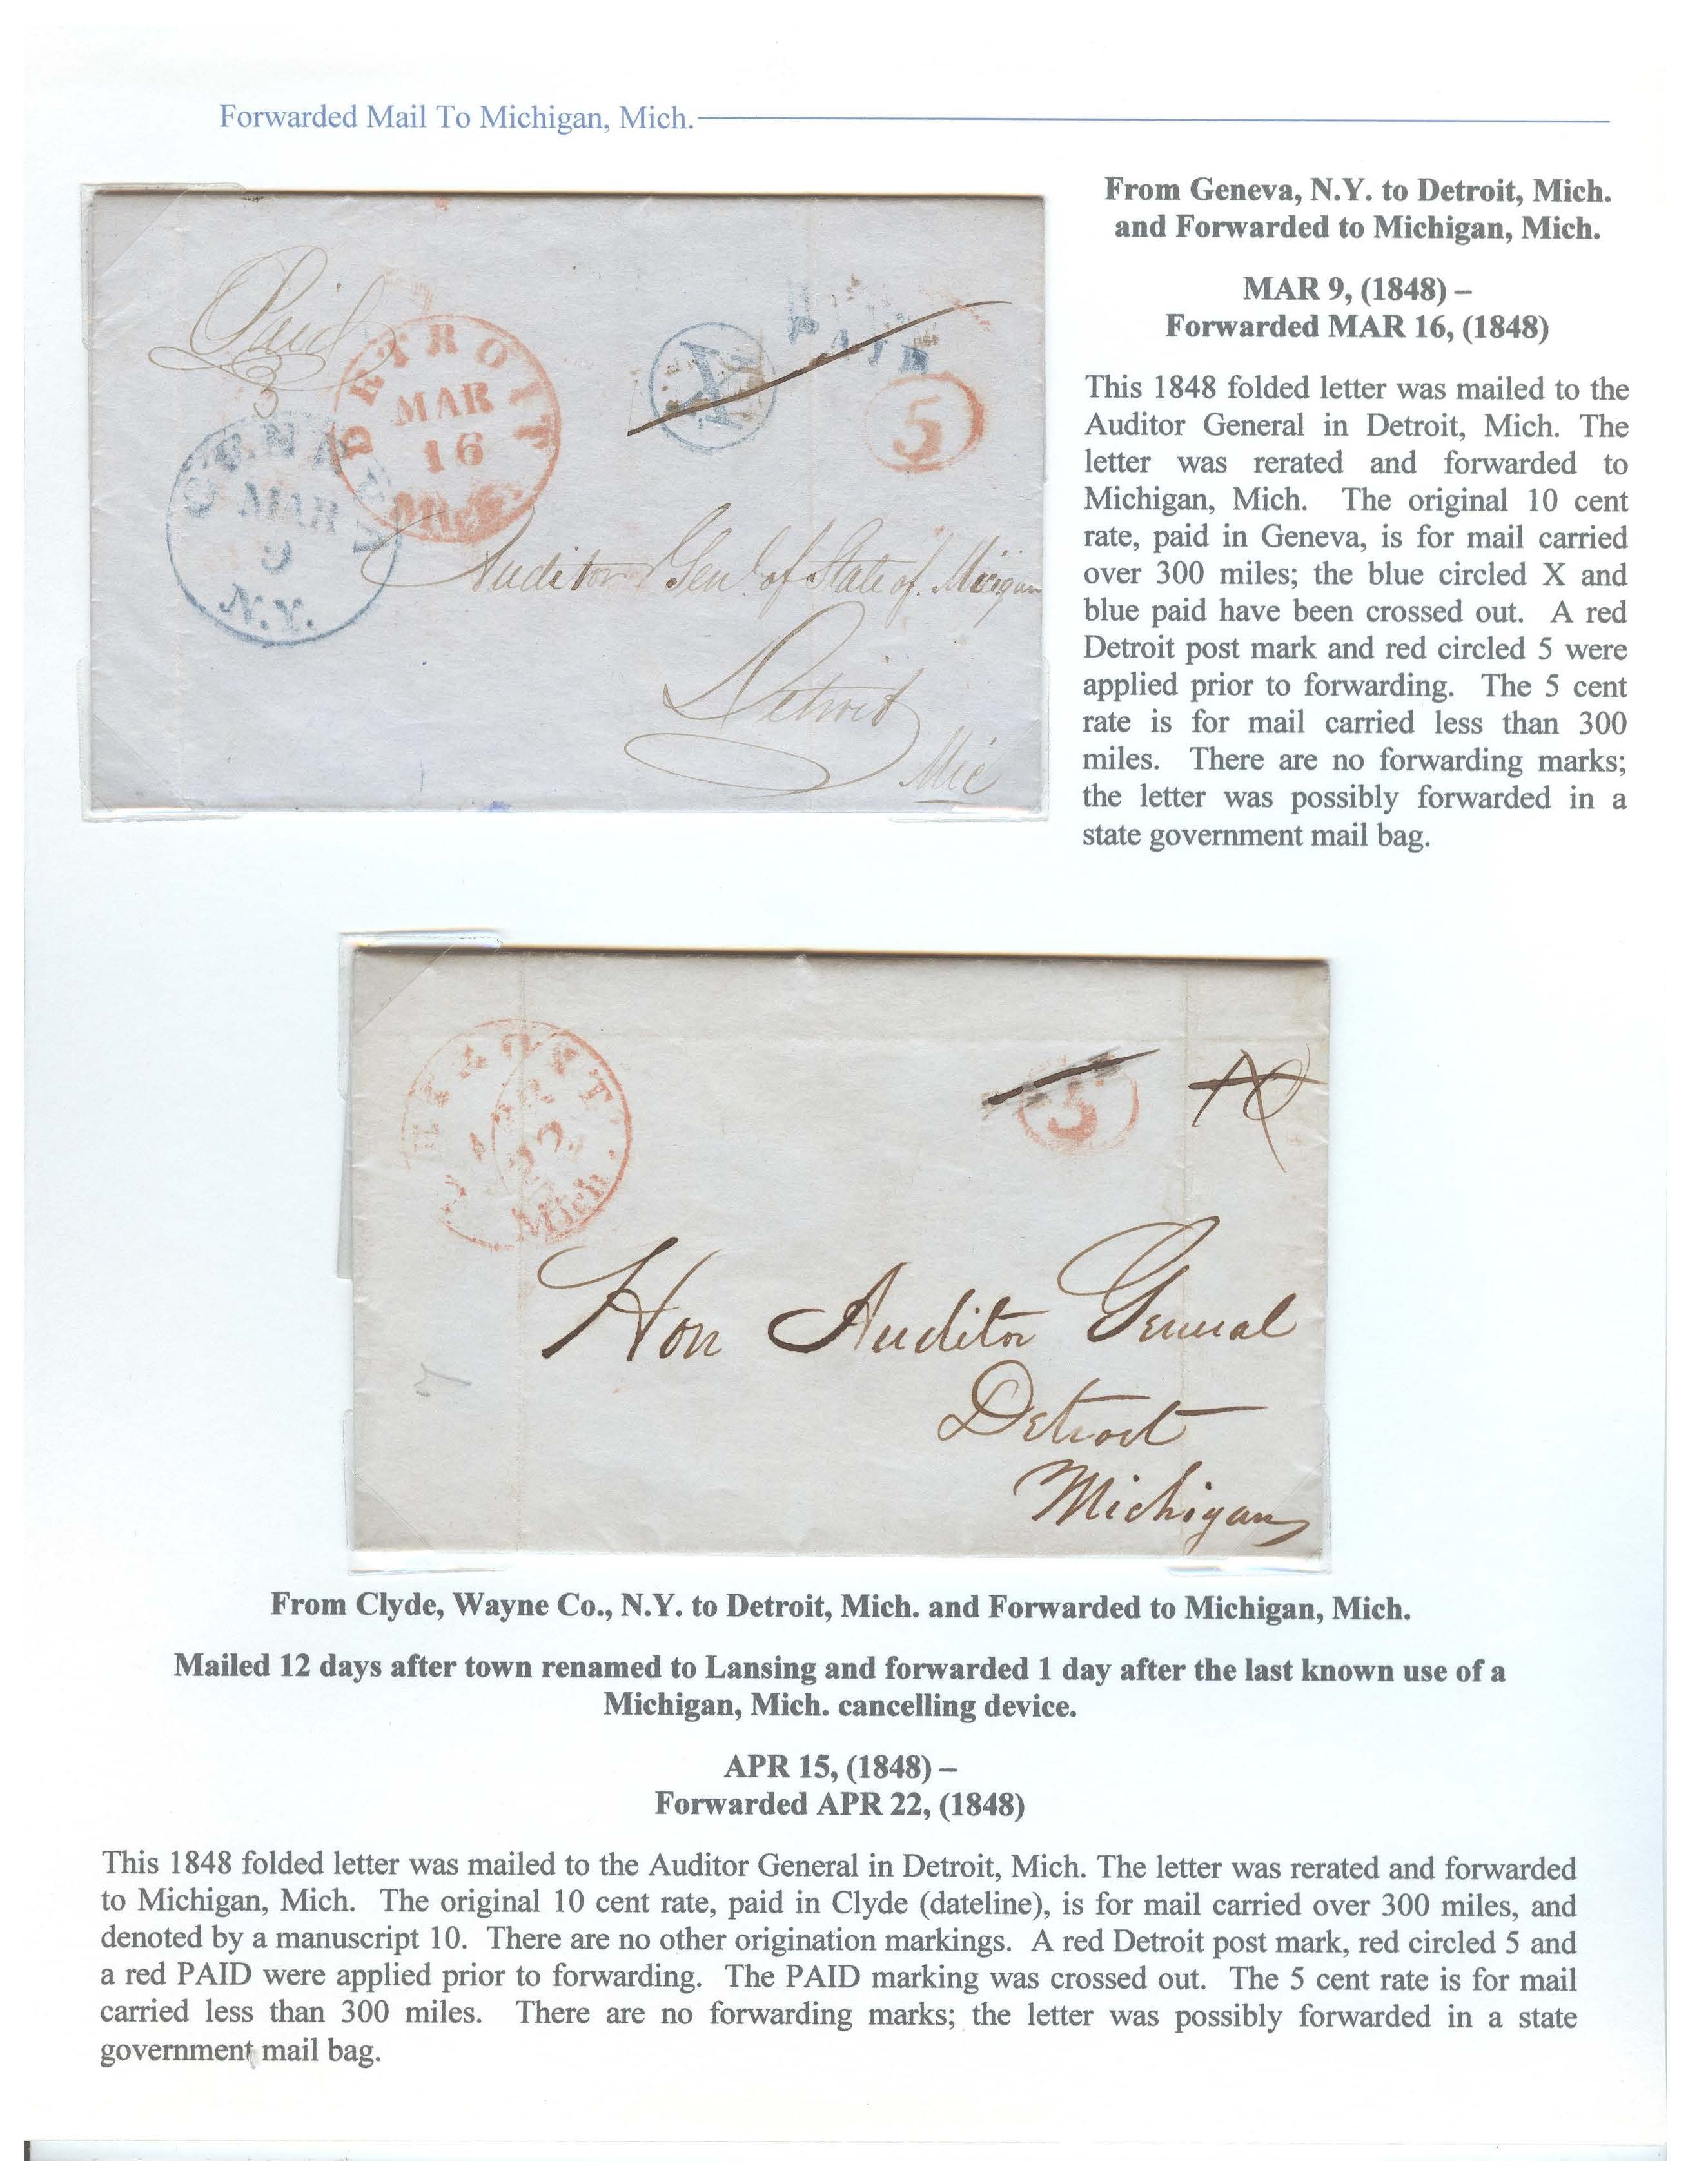 Forwarded Mail To Michigan, Mich.
From Geneva, N.Y. to Detroit, Mich.
and Forwarded to Michigan, Mich.
MAR 9, (1848) –
Forwarded MAR 16, (1848)
This 1848 folded letter was mailed to the
Auditor General in Detroit, Mich. The
letter was rerated and forwarded to
Michigan, Mich. The original 10 cent
rate, paid in Geneva, is for mail carried
over 300 miles; the blue circled X and
blue paid have been crossed out. A red
Detroit post mark and red circled 5 were
applied prior to forwarding. The 5 cent
rate is for mail carried less than 300
miles. There are no forwarding marks;
the letter was possibly forwarded in a
state government mail bag.
Paid
3
DETROIT
MAR
16
Mich.
MAR
9
N.Y.
X
PAID
5
Auditor Genl. of State of Micigan
Detroit
Mic
DETROIT
APR
22
Mich.
5
10
Hon Auditor General
Detroit
Michigan
From Clyde, Wayne Co., N.Y. to Detroit, Mich. and Forwarded to Michigan, Mich.
Mailed 12 days after town renamed to Lansing and forwarded 1 day after the last known use of a
Michigan, Mich. cancelling device.
APR 15, (1848) –
Forwarded APR 22, (1848)
This 1848 folded letter was mailed to the Auditor General in Detroit, Mich. The letter was rerated and forwarded
to Michigan, Mich. The original 10 cent rate, paid in Clyde (dateline), is for mail carried over 300 miles, and
denoted by a manuscript 10. There are no other origination markings. A red Detroit post mark, red circled 5 and
a red PAID were applied prior to forwarding. The PAID marking was crossed out. The 5 cent rate is for mail
carried less than 300 miles. There are no forwarding marks; the letter was possibly forwarded in a state
government mail bag.